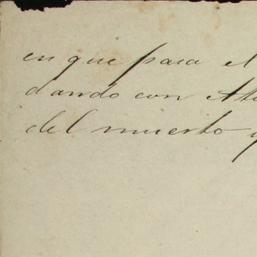 en que para el
dando con
del muerto y